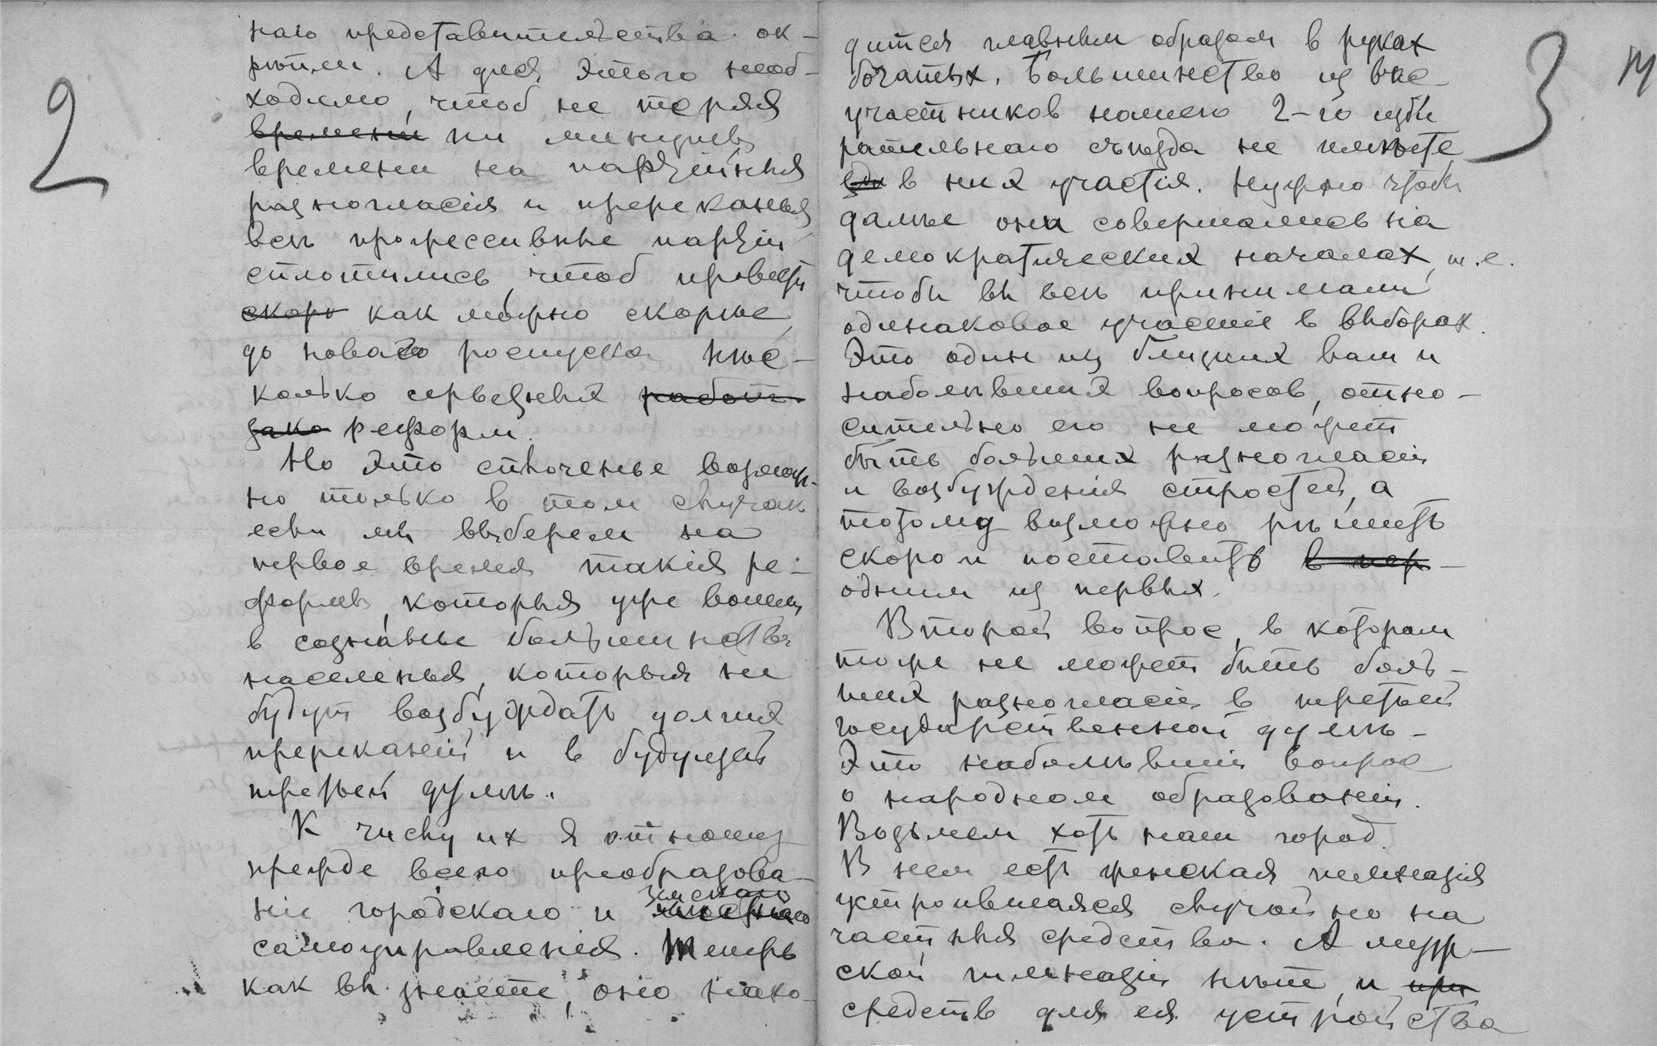 2
наго представительства ок-
рѣпли. А для этого необ-
ходимо, чтоб не теряя
времени ни минуты
времени на партійныя
разногласія и пререканья
всѣ прогрессивные партіи
сплотились, чтоб провести
скоро как можно скорѣе,
до новаго роспуска нѣс-
колько серьезных работ.
зако реформ.
Но это сплоченье возмож-
но только в том случаѣ
если мы выберем на
первое время такія ре-
формы, которыя уже вошли
в сознанье большинства
населенья, которыя не
будут возбуждать долгих
пререканій и в будущей
третьей думѣ.
К числу их я отношу
прежде всего преобразова-
ніе городскаго и земскаго
самоуправленія. Теперь
как вы знаете, оно нахо-
3
дится главным образом в руках
богатых. Большинство из вас
участников нашего 2-го изби
рательнаго съѣзда не имѣете
в них участія. Нужно чтобы
далѣе они совершались на
демократических началах, т.е.
чтобы вы всѣ принимали
одинаковое участіе в выборах.
Это один из близких вам и
наболѣвших вопросов, отно-
сительно его не может
быть больших разногласій
и возбужденія страстей, а
потому возможно рѣшить
скоро и поставить в пер-
одним из первых.
Второй вопрос, в котором
тоже не может быть боль-
ших разногласій в третьей
государственной думѣ-
Это наболѣвшій вопрос
о народном образованіи.
Возьмем хоть наш город.
В нем есть женская гимназія
устроившаяся случайно на
частныя средства. А муж-
ской гимназіи нѣт, и при
средств для ея устройства